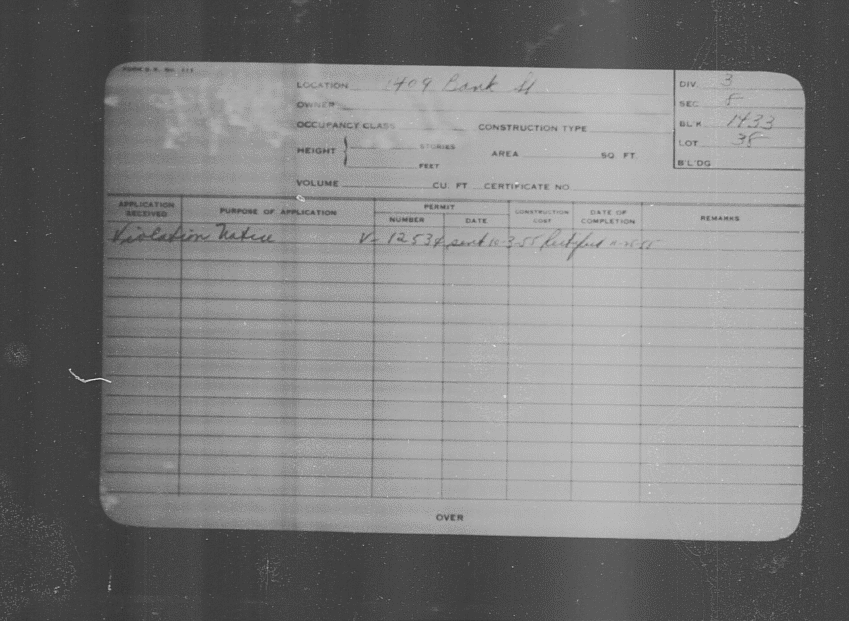 LOCATION 1409 Bank St
DIV. 3
OWNER
SEC 8
OCCUPANCY CLASS CONSTRUCTION TYPE
BL'K 1433
HEIGHT STORIES AREA SQ. FT.
LOT 38
FEET
B'L'DG
VOLUME CU. FT. CERTIFICATE NO.
APPLICATION RECEIVED PURPOSE OF APPLICATION PERMIT NUMBER DATE CONSTRUCTION COST DATE OF COMPLETION REMARKS
Violation Notice V- 12534 sent 10-3-55 Rectified
OVER